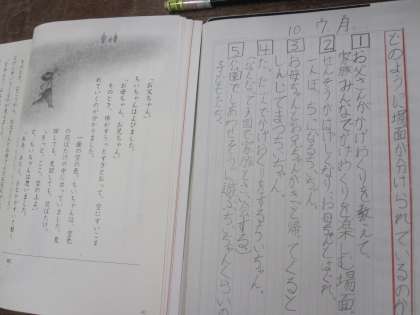 どのように場面が分けられているのか
1 お父さんがかげおくりを教えて、
家族みんなでかげおくりを楽しむ場面。
2 せんそうがはげしくなり、お母ちゃんとはぐれ、
一人ぼっちになるちいちゃん。
3 お母ちゃんとお兄ちゃんがきっと帰ってくると
しんじてまつちいちゃん。
4 たった一人でかげおくりをするちいちゃん。
5 公園でしあわせそうに遊ぶちいちゃんくらいの
子どもたち。
「お父ちゃん。」
ちいちゃんはよびました。
「お母ちゃん、お兄ちゃん。」
そのとき、体がすうっとすきとおって、空にすいこま
れていくのが分かりました。
一面の空の色。ちいちゃんは、空色
の花ばたけの中に立っていました。見
回しても、見回しても、花ばたけ。
「きっと、ここ、空の上よ。」
と、ちいちゃんは思いました。